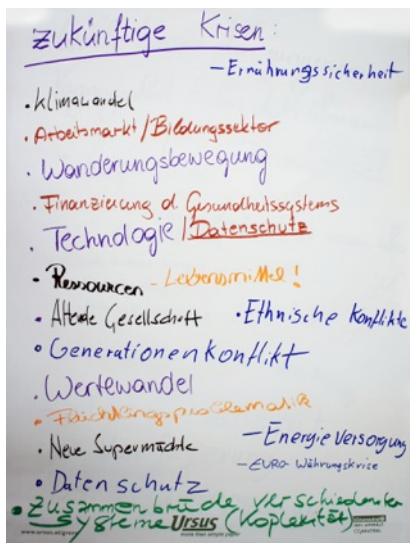 zukünftige Krisen:
- Ernährungssicherheit
• Klimawandel
• Arbeitsmarkt/Bildungssektor
• Wanderungsbewegung
• Finanzierung d. Gesundheitssystems
• Technologie/Datenschutz
• Ressourcen - Lebensmittel!
• Alternde Gesellschaft • Ethnische Konflikte
• Generationenkonflikt
• Wertewandel
• Flüchtlingsproblematik
• Neue Supermächte - Energieversorgung
- EURO-Währungskrise
• Datenschutz
• Zusammenbrüche verschiedenster
Systeme Ursus (Koplexität)
more than simple paper